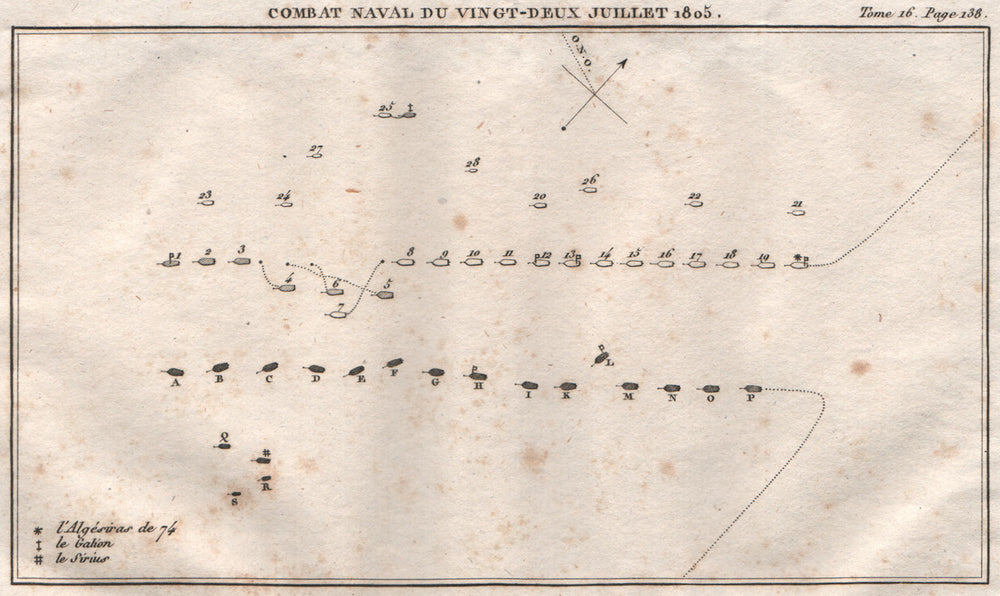 COMBAT NAVAL DU VINGT-DEUX JUILLET 1805.
Tome 16. Page 138.
O.N.O.
25 ‡
27
28
23 24 20 26 22 21
1 2 3 8 9 10 11 12 13 14 15 16 17 18 19 *
4 6 5
7
L
A B C D E F G H I K M N O P
Q
#
R
S
* l'Algésiras de 74
‡ le Galion
# le Sirius